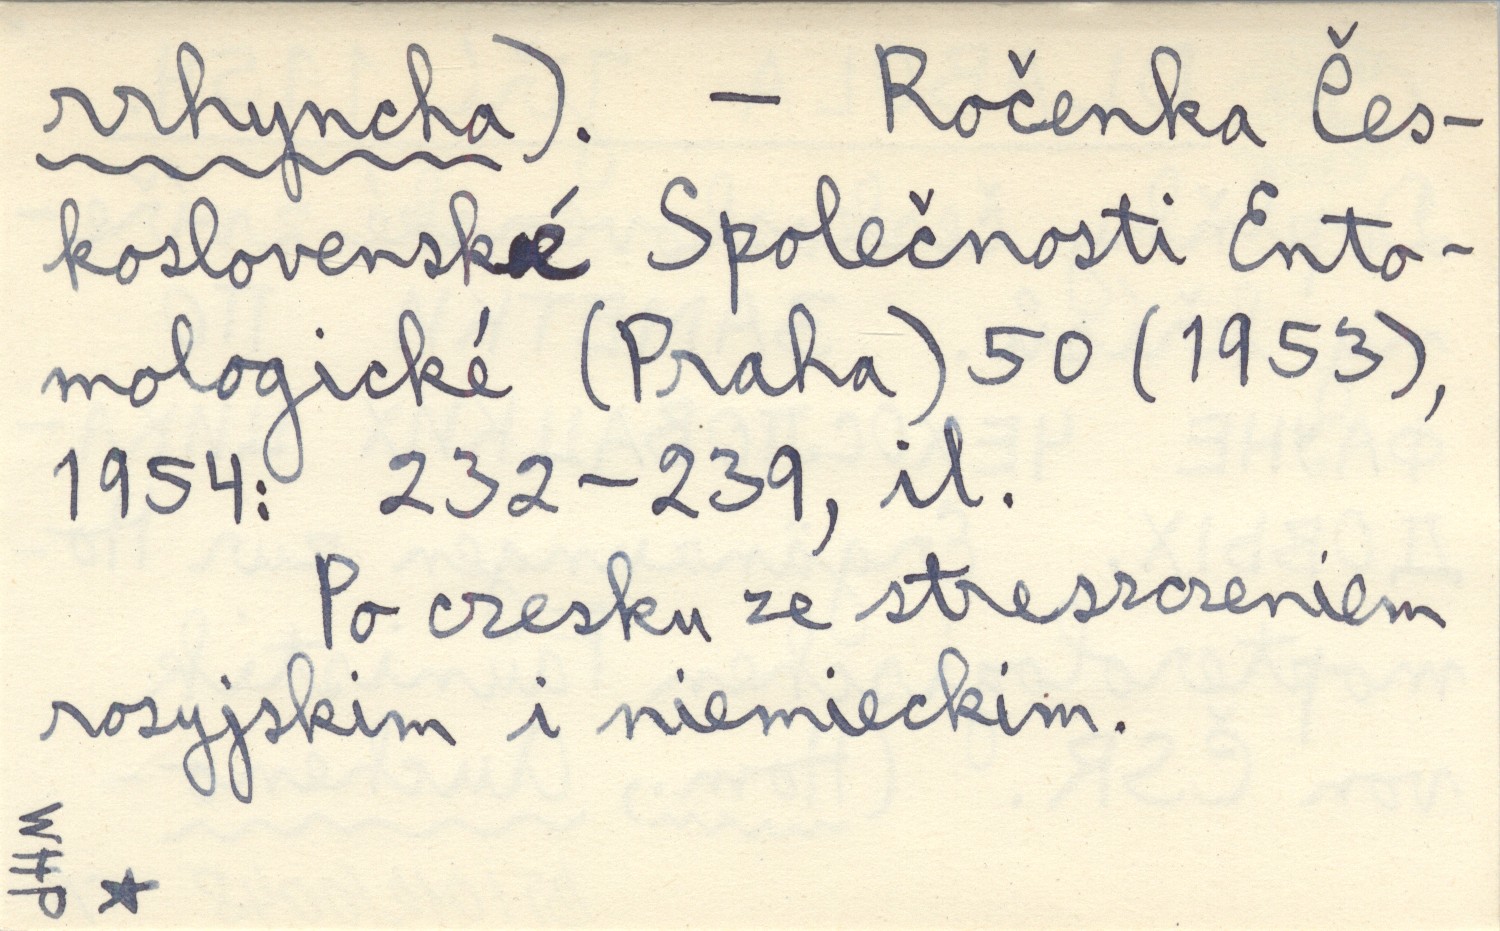 rrhyncha). – Ročenka Čes-
koslovenské Společnosti Ento-
mologické (Praha) 50 (1953),
1954: 232–239, il.
Po czesku ze streszczeniem
rosyjskim i niemieckim.
WHP
★